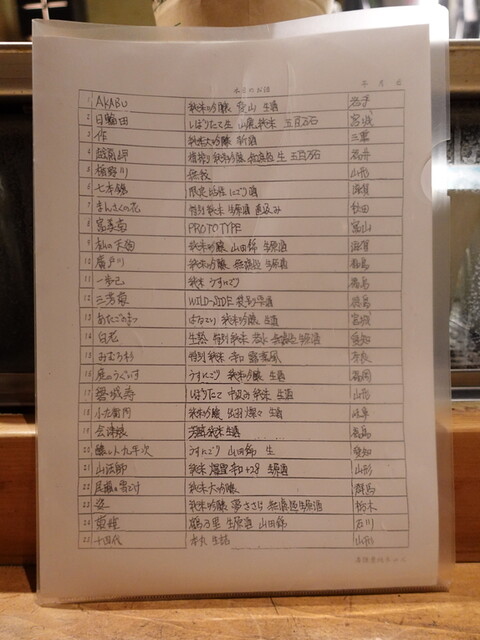 本日のお酒
年 月 日
1 AKABU 純米吟醸 愛山 生酒 岩手
2 日輪田 しぼりたて生 山廃純米 五百万石 宮城
3 作 純米大吟醸 新酒 三重
4 越前岬 槽搾り純米吟醸 無濾過 生 五百万石 福井
5 楯野川 山形
6 七本鎗 限定 にごり酒 滋賀
7 まんさくの花 特別純米 生原酒 直汲み 秋田
8 富美菊 PROTOTYPE 富山
9 私の天狗 純米吟醸 山田錦 生原酒 滋賀
10 廣戸川 純米吟醸 無濾過 生原酒 福島
11 一歩己 純米 うすにごり 福島
12 三芳菊 WILD-SIDE 徳島
13 あたごのまつ はるこい 純米吟醸 生酒 宮城
14 白老 生酛 特別純米 若水 無濾過 生原酒 愛知
15 みむろ杉 特別純米 辛口 露葉風 奈良
16 庭のうぐいす うすにごり 純米吟醸 生酒 福岡
17 磐城壽 しぼりたて 中汲み 純米 生酒 山形
18 小左衛門 純米吟醸 出羽燦々 生酒 岐阜
19 会津娘 芳醇純米生酒 福島
20 醸し人九平次 うすにごり 山田錦 生 愛知
21 山法師 純米 爆雷辛口 +28 生原酒 山形
22 尾瀬の雪どけ 純米大吟醸 群馬
23 姿 純米吟醸 夢ささら 無濾過生原酒 栃木
24 鶴乃里 生原酒 山田錦 石川
25 十四代 本丸 生詰 山形